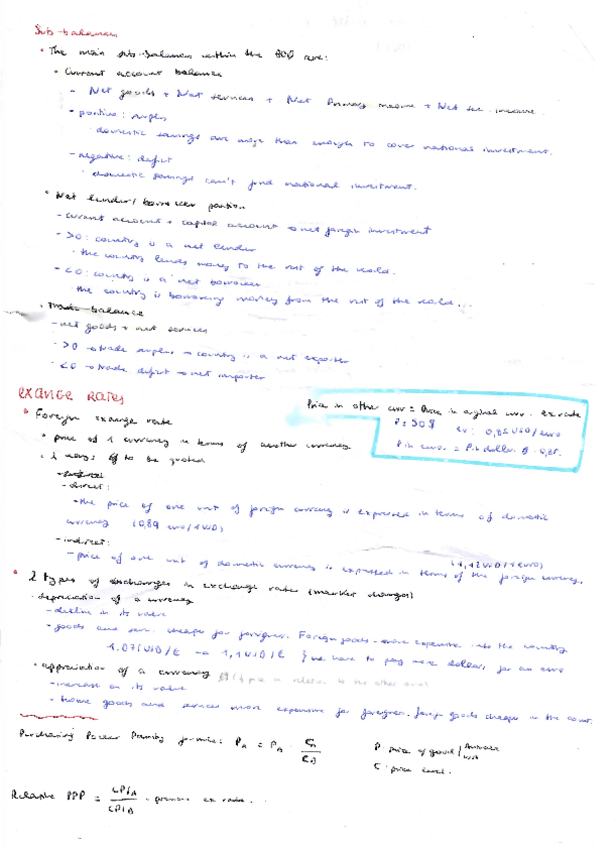 Sub-balances
• The main sub-balances within the BOP are:
• Current account balance
- Net goods + Net services + Net Primary income + Net sec. income.
- positive: surplus
· domestic savings are more than enough to cover national investment.
- negative: deficit
· domestic savings can't fund national investment.
• Net lender/borrower position
- current account + capital account → net foreign investment
- >0: country is a net lender
· the country lends money to the rest of the world.
- <0: country is a net borrower
· the country is borrowing money from the rest of the world.
• Trade balance
- net goods + net services
- >0 → trade surplus → country is a net exporter
- <0 → trade deficit → net importer
EXANGE RATES
Price in other curr = Price in original curr. ex rate
P = 50$
0,85 USD/euro
P in euro = P in dollar · 0,85.
• Foreign exange rate
• price of 1 currency in terms of another currency
to be quoted
- direct:
- the price of one unit of foreign currency is expressed in terms of domestic
currency (0,89 euro/1USD)
- indirect:
(1,12 USD/1 euro)
- price of one unit of domestic currency is expressed in terms of the foreign currency.
• 2 types of exchanges in exchange rates (market changes)
· depreciation of a currency
- decline in its value
- goods and serv. cheaper for foreigners. Foreign goods more expensive into the country
we have to pay more dollars for an euro
• appreciation of a currency
- increase on its value
- home goods and services more expensive for foreigners. foreign goods cheaper in the coun.
Purchasing Power Parity formula:
P: price of good
C: price level.
Relative PPP = CPI A / CPI B · previous ex rate.